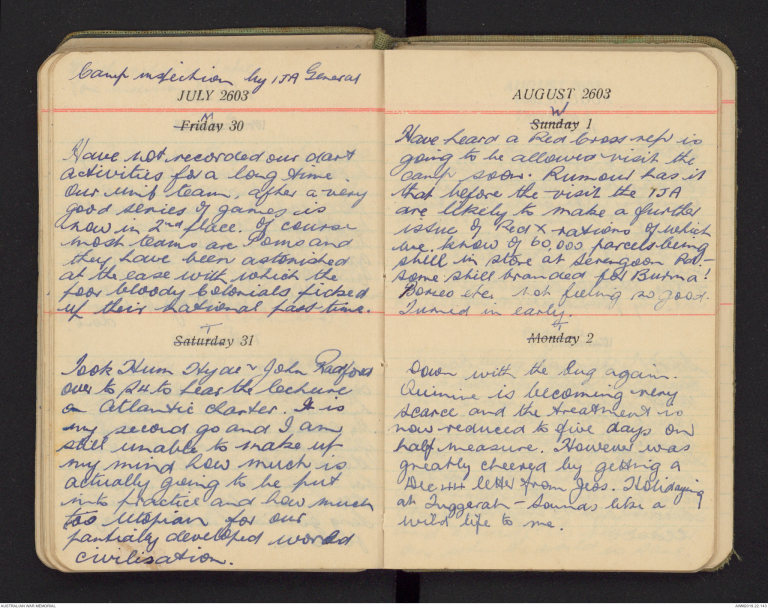 Camp inspection by IJA General
JULY 2603
Friday 30
Have not recorded our dart
activities for a long time.
Our unit team, after a very
good series of games is
now in 2nd place. Of course
most teams are Poms and
they have been astonished
at the ease with which the
poor bloody Colonials picked
up their national past time.
T
Saturday 31
Took Hum Hyde & John Radford
over to P4 to hear the lecture
on Atlantic Charter. It is
my second go and I am
still unable to make up
my mind how much is
actually going to be put
into practice and how much
too Utopian for our
partially developed world
civilisation.
AUGUST 2603
W
Sunday 1
Have heard a Red Cross rep is
going to be allowed visit the
camp soon. Rumour has it
that before the visit the IJA
are likely to make a further
issue of Red X rations of which
we know of 60,000 parcels being
still in store at Serengoon Rd -
some still branded for Burma!
Borneo etc. Not feeling so good.
Turned in early.
Monday 2
Down with the bug again.
Quinine is becoming very
scarce and the treatment is
now reduced to five days on
half measure. However was
greatly cheered by getting a
Dec letter from Jeos. Holidaying
at Tuggerah - sounds like a
wild life to me.
AUSTRALIAN WAR MEMORIAL